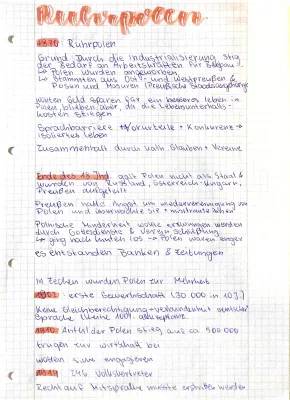 Ruhrpolen
1870 Ruhrpolen
Grund: Durch die Industrialisierung stieg
der Bedarf an Arbeitskräften für Bergbau
↳ Polen wurden angeworben
↳ Stammten aus Ost- und Westpreußen &
Posen und Masuren (Preußische Staatsangehörige
wollten Geld sparen für ein besseres Leben in
Polen blieben aber, da die Lebensunterhalts-
kosten stiegen
Sprachbarriere + Vorurteile + Konkurrenz →
isoliertes Leben
Zusammenhalt durch kath. Glauben + Vereine
Ende des 18 Jhd. galt Polen nicht als Staat &
wurden von Russland, Österreich-Ungarn,
Preußen aufgeteilt
Preußen hatte Angst um Wiedervereinigung von
Polen und überwachte sie +
Polnische Minderheit wollte
durch Gottesdienste &
↳ ging nach hinten los → Polen waren enger
es entstanden Banken & Zeitungen
In Zechen wurden Polen zur Mehrheit
1902 erste Gewerkschaft (30 000 in 10 J.)
Keine Gleichberechtigung
Sprache wurde nicht akzeptiert
1910 Anteil der Polen stieg auf ca 500 000
trugen zur Wirtschaft bei
wollten sich engagieren
1919 Volksvertreter
Recht auf Mitsprache musste erstritten werden